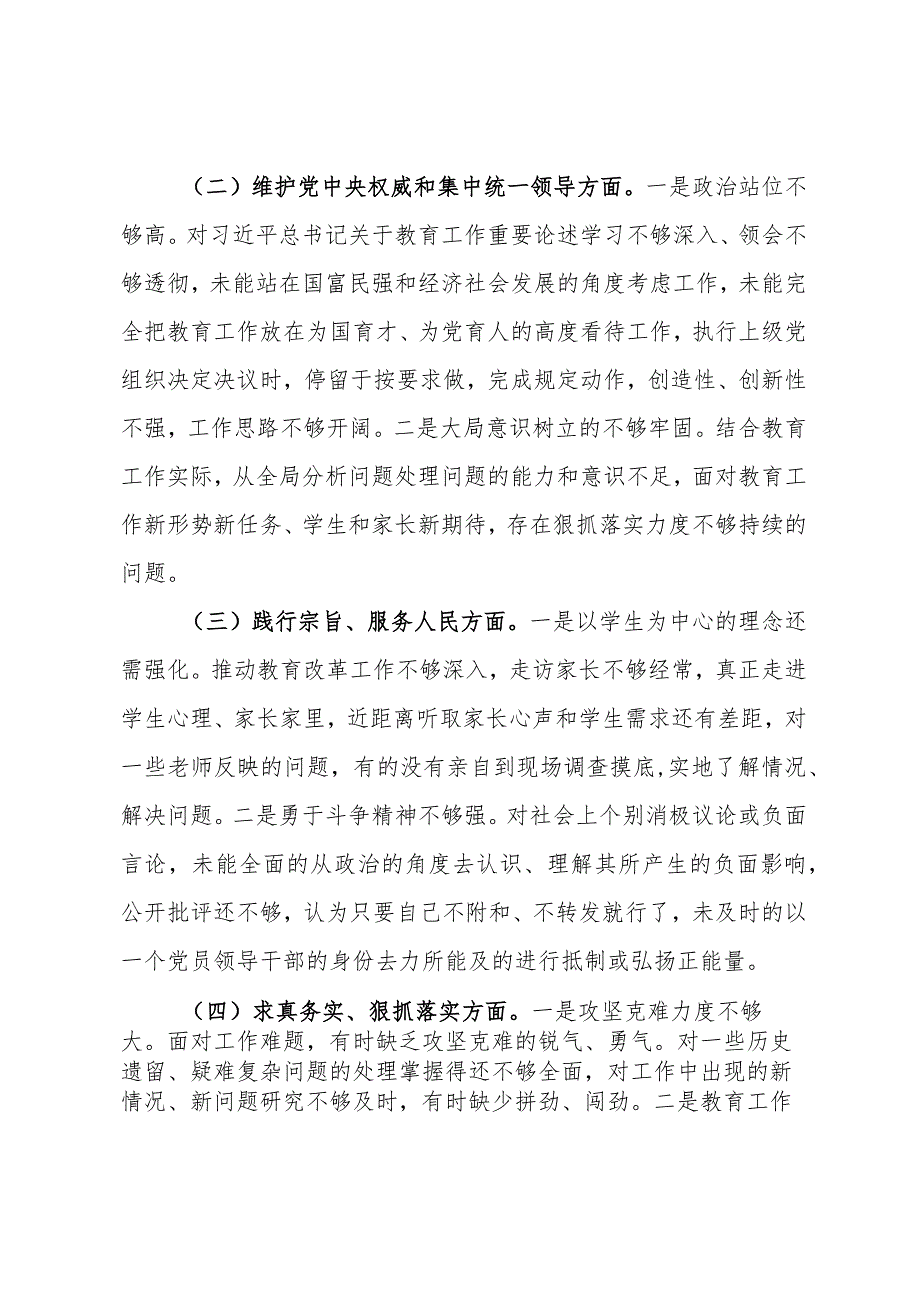 （二）维护党中央权威和集中统一领导方面。一是政治站位不
够高。对习近平总书记关于教育工作重要论述学习不够深入、领会不
够透彻，未能站在国富民强和经济社会发展的角度考虑工作，未能完
全把教育工作放在为国育才、为党育人的高度看待工作，执行上级党
组织决定决议时，停留于按要求做，完成规定动作，创造性、创新性
不强，工作思路不够开阔。二是大局意识树立的不够牢固。结合教育
工作实际，从全局分析问题处理问题的能力和意识不足，面对教育工
作新形势新任务、学生和家长新期待，存在狠抓落实力度不够持续的
问题。
（三）践行宗旨、服务人民方面。一是以学生为中心的理念还
需强化。推动教育改革工作不够深入，走访家长不够经常，真正走进
学生心理、家长家里，近距离听取家长心声和学生需求还有差距，对
一些老师反映的问题，有的没有亲自到现场调查摸底,实地了解情况、
解决问题。二是勇于斗争精神不够强。对社会上个别消极议论或负面
言论，未能全面的从政治的角度去认识、理解其所产生的负面影响，
公开批评还不够，认为只要自己不附和、不转发就行了，未及时的以
一个党员领导干部的身份去力所能及的进行抵制或弘扬正能量。
（四）求真务实、狠抓落实方面。一是攻坚克难力度不够
大。面对工作难题，有时缺乏攻坚克难的锐气、勇气。对一些历史
遗留、疑难复杂问题的处理掌握得还不够全面，对工作中出现的新
情况、新问题研究不够及时，有时缺少拼劲、闯劲。二是教育工作